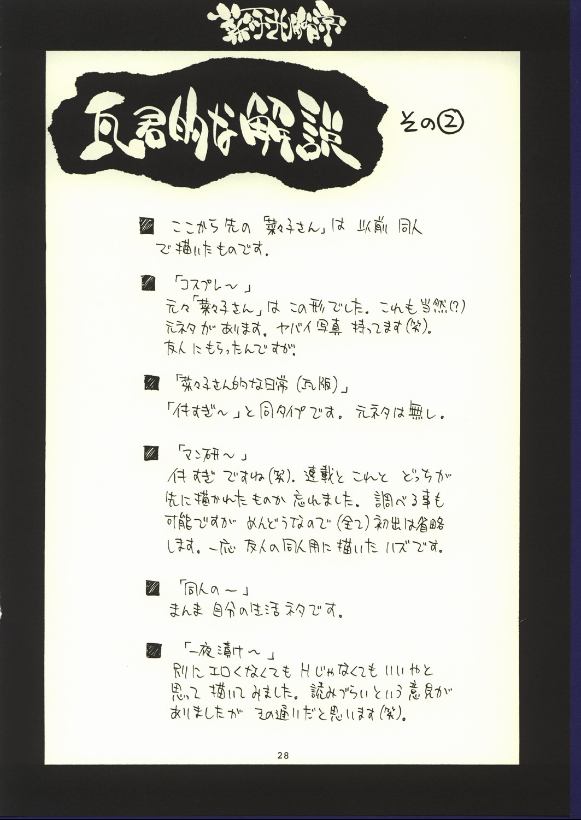 瓦君的な解説 その②
■ ここから先の「菜々子さん」は 以前 同人
で描いたものです。
■ 「コスプレ〜」
元々「菜々子さん」は この形でした。これも当然(?)
元ネタがあります。ヤバイ写真 持ってます(笑)。
友人にもらったんですが。
■ 「菜々子さん的な日常(瓦版)」
「件すぎ〜」と同タイプです。元ネタは無し。
■ 「マン研〜」
件すぎ ですね(笑)。連載と これと どっちが
先に描かれたものか 忘れました。調べる事も
可能ですが めんどうなので(全て)初出は省略
します。一応 友人の同人用に描いた ハズです。
■ 「同人の〜」
まんま 自分の生活ネタです。
■ 「一夜漬け〜」
別に エロくなくても Hじゃなくても いいやと
思って 描いて みました。読みづらいという 意見が
ありましたが その通りだと思います(笑)。
28